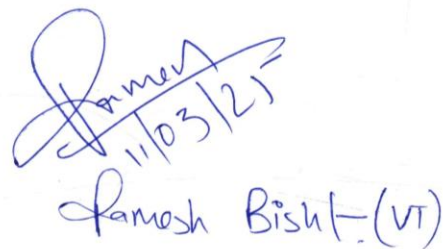 Ramesh
11/03/25
Ramesh Bisht-(VT)